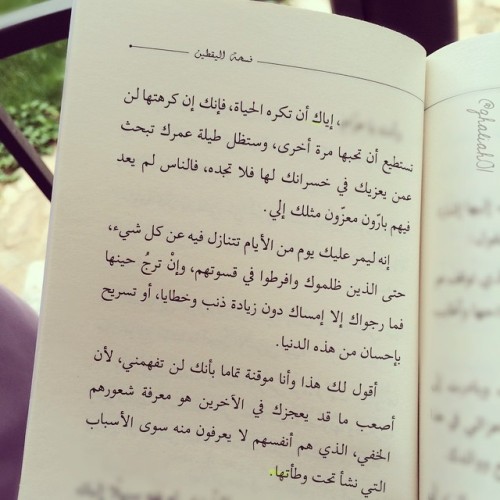 نسمة اليقطين
، إياك أن تكره الحياة، فإنك إن كرهتها لن
نستطيع أن تحبها مرة أخرى، وستظل طيلة عمرك تبحث
عمن يعزيك في خسرانك لها فلا تجده، فالناس لم يعد
فيهم بارّون معزّون مثلك إلي.
إنه ليمر عليك يوم من الأيام تتنازل فيه عن كل شيء،
حتى الذين ظلموك وافرطوا في قسوتهم، وإنْ ترجُ حينها
فما رجواك إلا إمساك دون زيادة ذنب وخطايا، أو تسريح
بإحسان من هذه الدنيا.
أقول لك هذا وأنا موقنة تماما بأنك لن تفهمني، لأن
أصعب ما قد يعجزك في الآخرين هو معرفة شعورهم
الخفي، الذي هم أنفسهم لا يعرفون منه سوى الأسباب
التي نشأ تحت وطأتها.